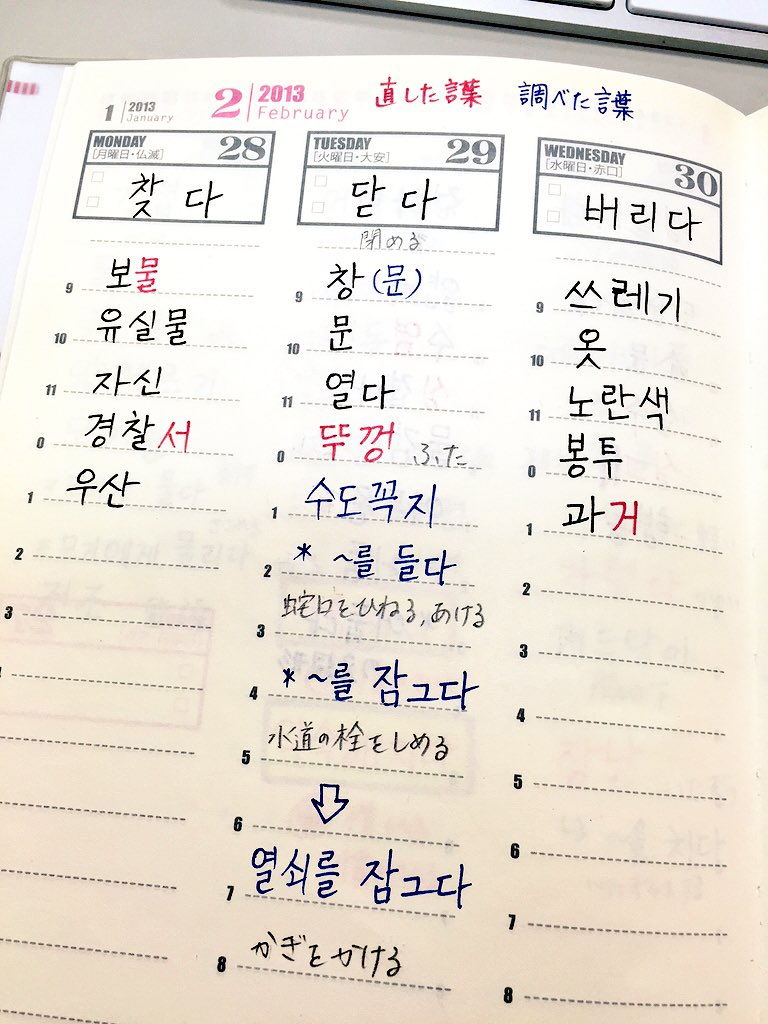 1 2013 January
2 2013 February
直した言葉 調べた言葉
MONDAY 28
[月曜日・仏滅]
찾다
9 보물
10 유실물
11 자신
0 경찰서
1 우산
2
3
TUESDAY 29
[火曜日・大安]
닫다
閉める
9 창(문)
10 문
11 열다
0 뚜껑 ふた
1 수도꼭지
2 * ~를 들다
蛇口をひねる,あける
3
4 * ~를 잠그다
水道の栓をしめる
5
6 ⇩
7 열쇠를 잠그다
8 かぎをかける
WEDNESDAY 30
[水曜日・赤口]
버리다
9 쓰레기
10 옷
11 노란색
0 봉투
1 과거
2
3
4
5
6
7
8